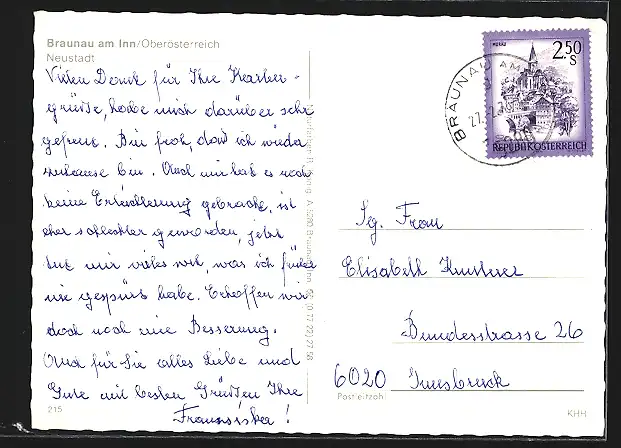 Braunau am Inn/Oberösterreich
Neustadt
Vielen Dank für Ihre Karten-
grüße, habe mich darüber sehr
gefreut. Bin froh, daß ich wieder
zuhause bin. Auch mir hat es noch
keine Erleichterung gebracht, ist
eher schlechter geworden, jetzt
tut mir vieles weh, was ich früher
nie gespürt habe. Erhoffen wir
doch noch eine Besserung.
Auch für Sie alles Liebe und
Gute mit besten Grüßen Ihre
Franziska!
215
MURAU
2.50
S
REPUBLIK ÖSTERREICH
BRAUNAU AM
Sg. Frau
Elisabeth
Bundesstrasse 26
6020 Innsbruck
Postleitzahl
KHH